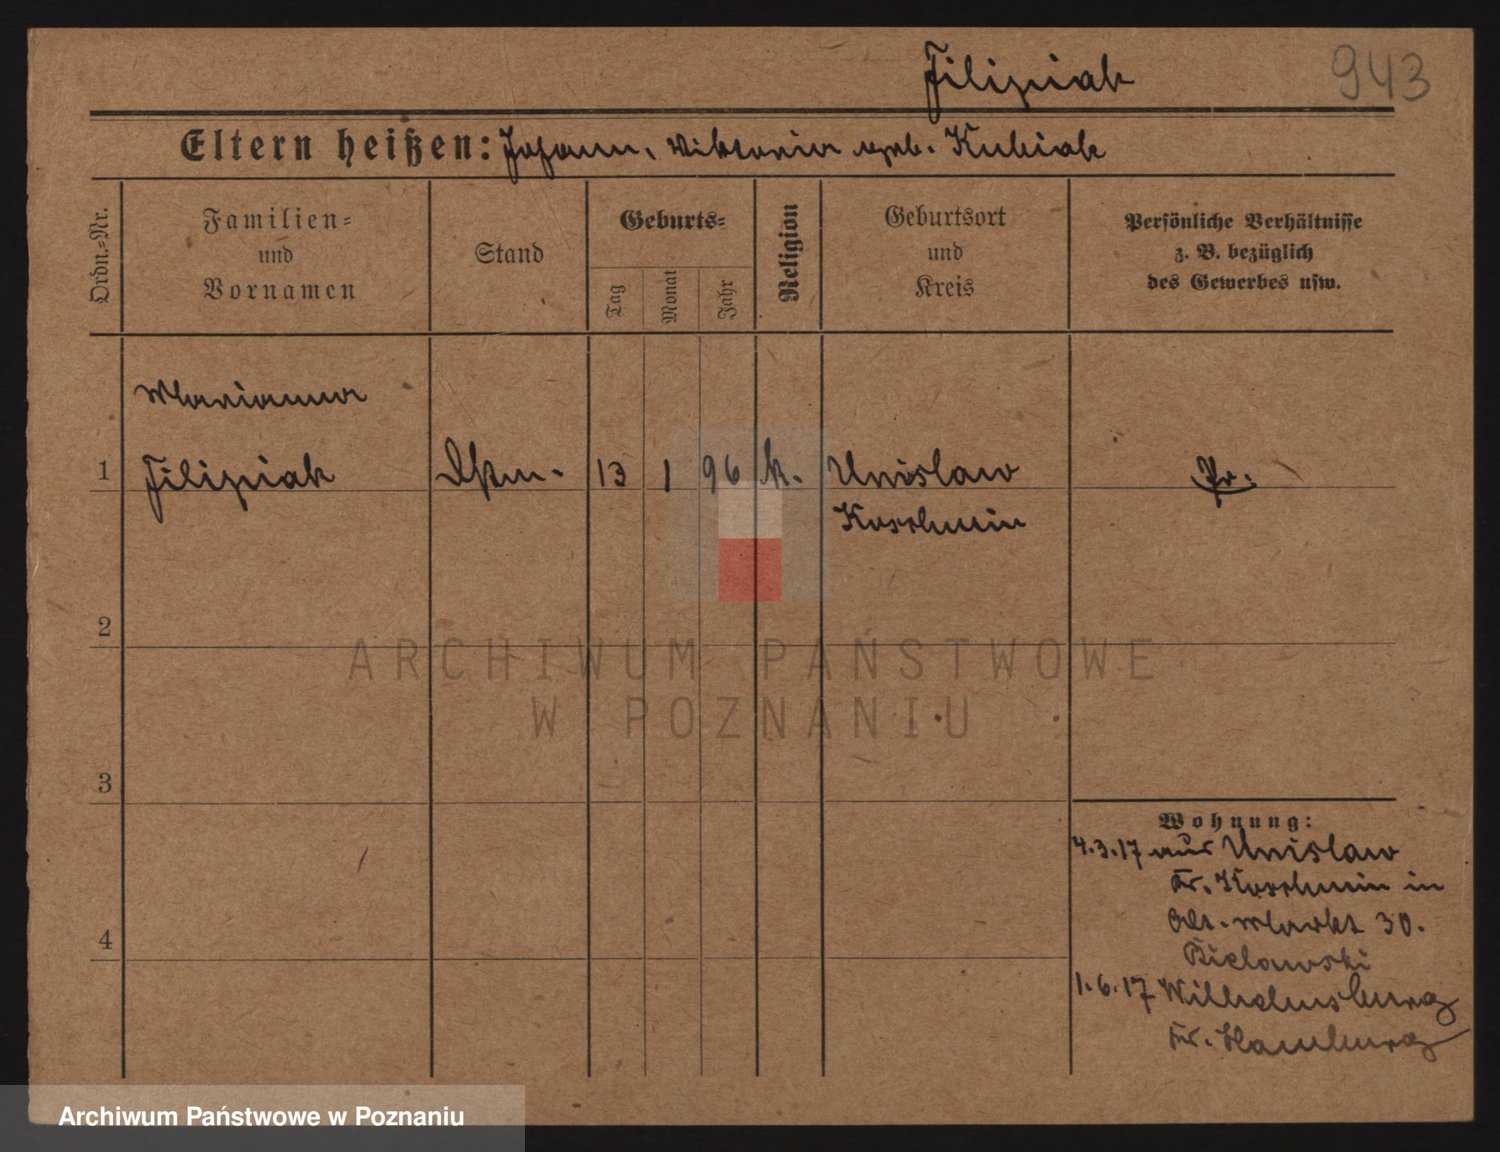 Filipiak
943
Eltern heißen: Johann, Viktoria geb. Kubiak
Ordn.-Nr.
Familien-
und
Vornamen
Stand
Geburts-
Tag
Monat
Jahr
Religion
Geburtsort
und
Kreis
Persönliche Verhältnisse
z. B. bezüglich
des Gewerbes usw.
Marianna
1 Filipiak 13 1 96 k. Unislaw Pr.
Koschmin
2
3
4
Wohnung:
4.3.17 aus Unislaw
Kr. Koschmin in
Alt. Markt 30.
Bielawski
1.6.17 Wilhelmsburg
Kr. Hamburg
ARCHIWUM PAŃSTWOWE
W POZNANIU
Archiwum Państwowe w Poznaniu